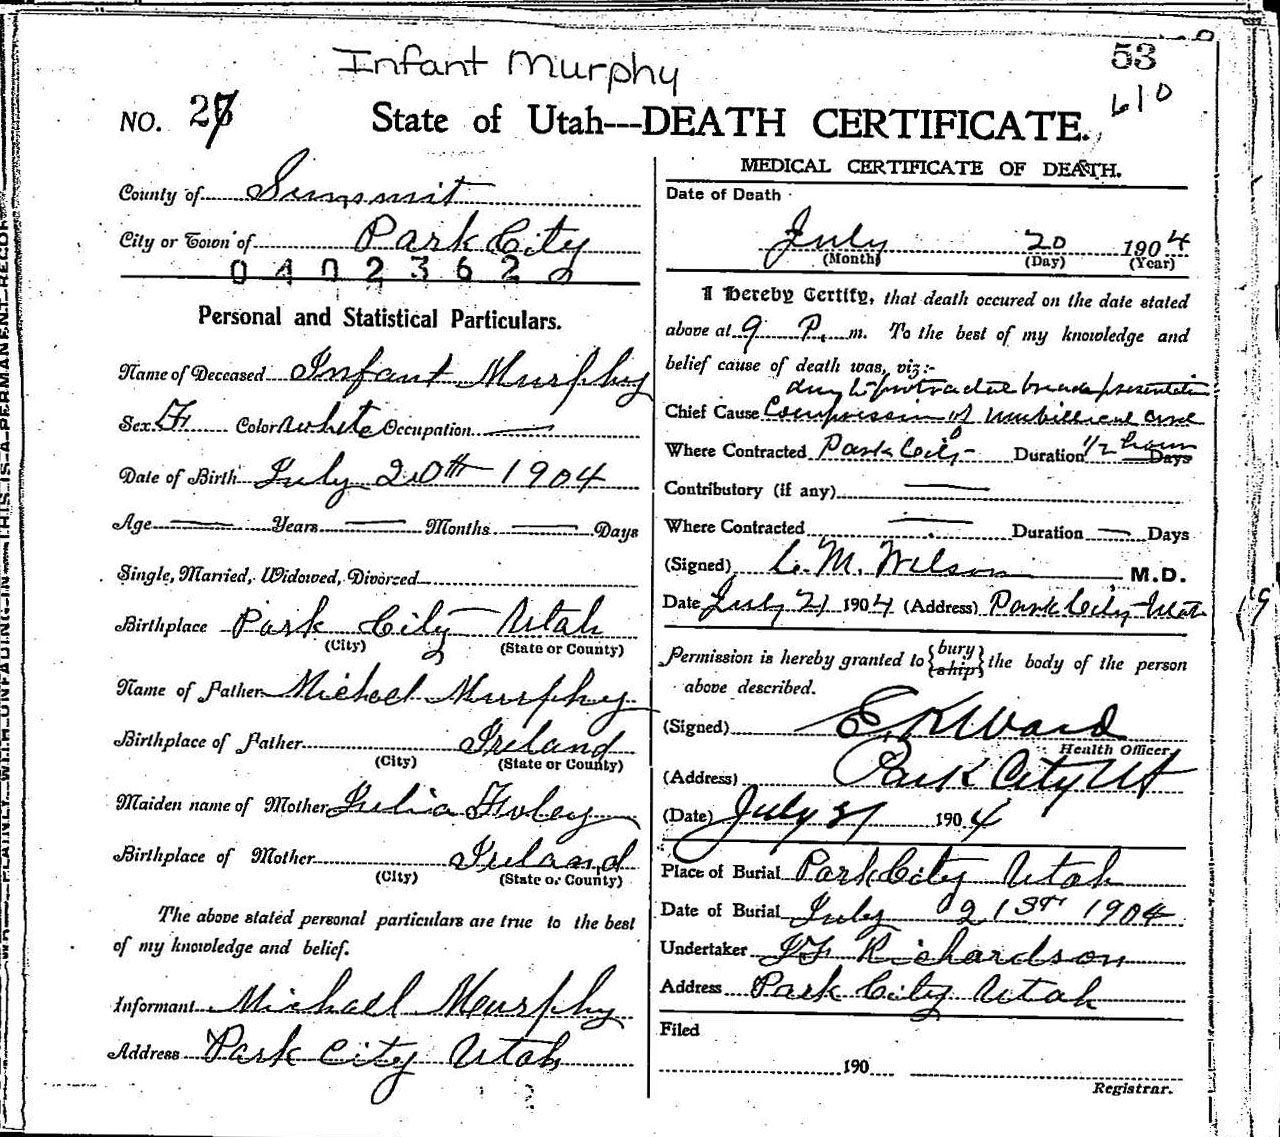 Infant Murphy
53
610
NO. 27
State of Utah---DEATH CERTIFICATE.
County of Summit
City or Town of Park City
0402362
Personal and Statistical Particulars.
Name of Deceased Infant Murphy
Sex F Color white Occupation —
Date of Birth July 20th 1904
Age — Years — Months — Days
Single, Married, Widowed, Divorced
Birthplace Park City Utah
(City) (State or County)
Name of Father Michael Murphy
Birthplace of Father Ireland
(City) (State or County)
Maiden name of Mother Julia Foley
Birthplace of Mother Ireland
(City) (State or County)
The above stated personal particulars are true to the best
of my knowledge and belief.
Informant Michael Murphy
Address Park City Utah
MEDICAL CERTIFICATE OF DEATH.
Date of Death
July 20 1904
(Month) (Day) (Year)
I Hereby Certify, that death occured on the date stated
above at 9 P. m. To the best of my knowledge and
belief cause of death was, viz:-
due to protracted breech presentation
Chief Cause Compression of umbilical cord
Where Contracted Park City Duration 1/2 hour Days
Contributory (if any) —
Where Contracted — Duration — Days
(Signed) C. M. Wilson M.D.
Date July 21 1904 (Address) Park City Utah
Permission is hereby granted to {bury ship} the body of the person
above described.
(Signed) E K Ward
Health Officer
(Address) Park City Ut
(Date) July 21 1904
Place of Burial Park City Utah
Date of Burial July 21st 1904
Undertaker Richardson
Address Park City Utah
Filed
190
Registrar.
WRITE PLAINLY WITH UNFADING INK THIS IS A PERMANENT RECORD